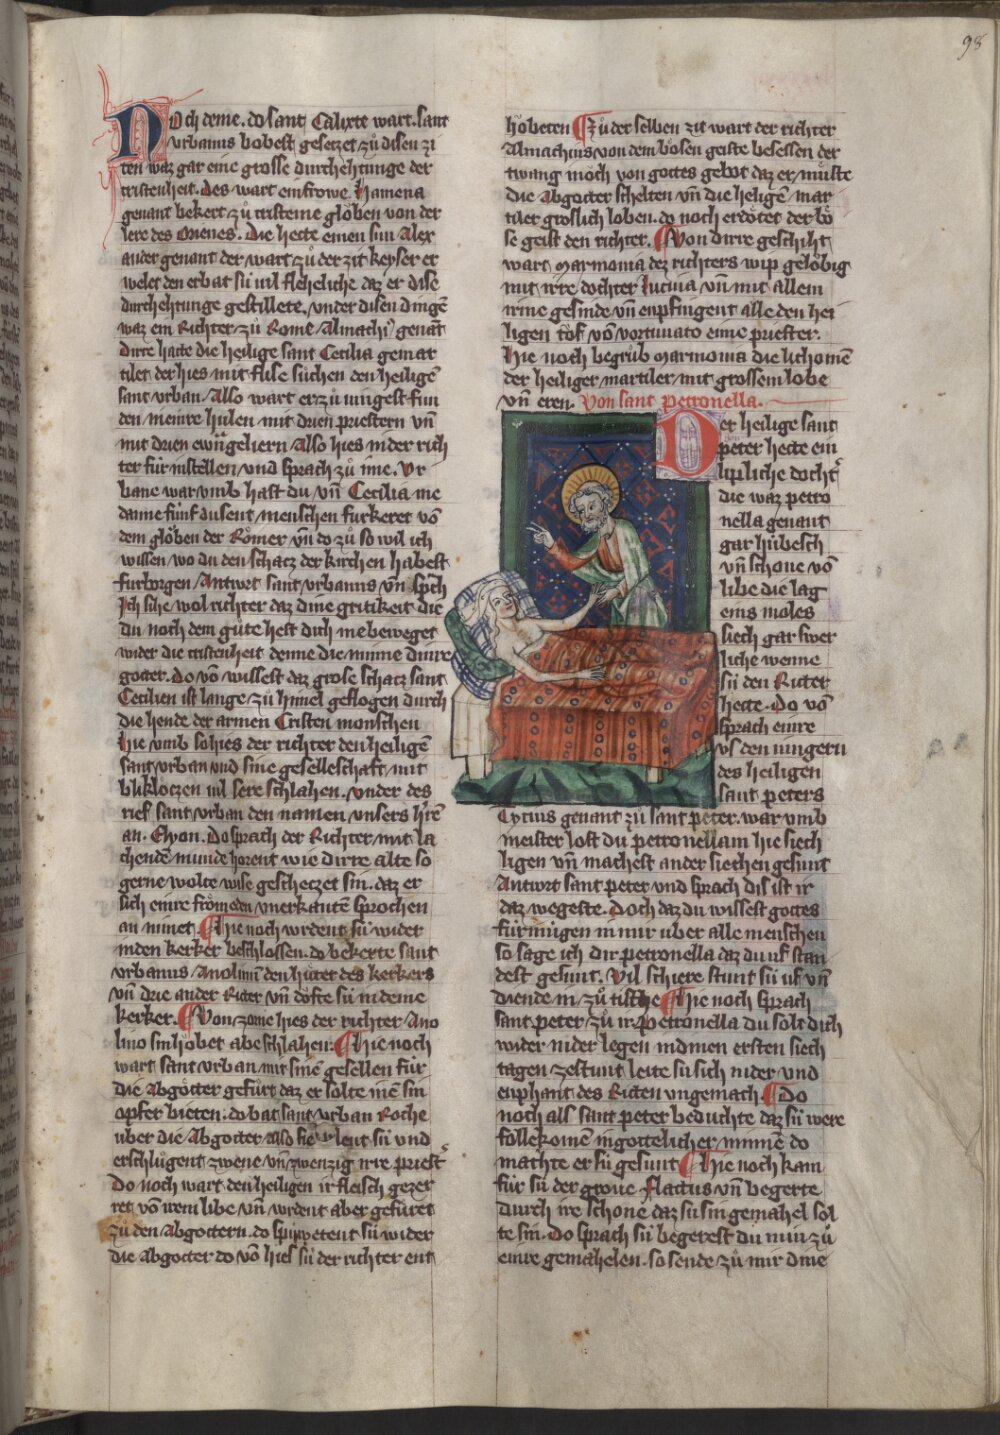 98
Noch deme. do sant Calixte wart. sant
vrbanus bobest gesetzet zů disen zi
ten waz gar eine grosse durchehtunge der
cristenheit. Des wart ein frowe. Hamena
genant bekert zů cristeme glöben von der
lere des Orienes. Die hette einen sun Alex
ander genant der wart zů der zit keyser er
welet den erbat sü uil fleheliche daz er dise
durchehtunge gestillete. vnder disen dingē
waz ein Richter zů Rome Almachi9 genāt
Dirre hatte die heilige sant Cecilia gemar
tilet der hies mit flise süchen den heiligē
sant vrban. Also wart er zů iungest fun
den in eime hulen mit drien priestern vn̄
mit drien ewāgeliern Also hies in der rich
ter für in stellen vnd sprach zů ime. Vr
bane war vmb hast du vn̄ Cecilia me
danne fünf dusent menschen furkeret vō
dem glöben der Römer vn̄ do zů so wil ich
wissen wo du den schatz der kirchen habest
fürborgen Antwrt sant vrbanus vn̄ sp̄ch
Ich sihe wol richter daz dine gritikeit die
du noch dem gůte hest dich me beweget
wider die cristenheit denne die minne dinre
götter. Do vō wissest daz grose schatz sant
Cecilien ist lange zů himel geflogen durch
die hende der armen Cristen monschen
Hie vmb so hies der richter den heiligē
sant vrban vnd sine geselleschaft mit
blikloczen uil sere schlahen. vnder des
rief sant vrban den namen vnsers h're
an. Elyon. Do sprach der Richter mit la
chendē munde horent wie dirre alte so
gerne wolte wise geschetzet sin. daz er
sich einre frömeden vnerkantē sprochen
an nimet. Hie noch wrdent sü wider
in den kerker beschlossen. do bekerte sant
vrbanus Anolinū den hůter des kerkers
vn̄ drie ander Riter vn̄ döfte sü in deme
kerker. Von zorne hies der richter Ano
lino sin höbet abe schlahen. Hie noch
wart sant vrban mit sinē gesellen für
die Abgötter gefürt daz er solte inē sin
opfer bieten. do bat sant vrban Roche
uber die Abgötter also fielent sü vnd
erschlůgent zwene vn̄ zwenzig irre priest'
Do noch wart den heiligen ir fleisch gezer
ret vō irem libe vn̄ wrdent aber gefüret
zů den Abgöttern. do spüwetent sü wider
die Abgötter do vō hies sü der richter ent
höbeten Zů der selben zit wart der richter
Almachius von dem bösen geiste besessen der
twang in och von gottes gebot daz er můste
die Abgötter schelten vn̄ die heiligē mar
tiler groslich loben. do noch ertötet der bö
se geist den richter. Von dirre geschiht
wart Marmonia dez richters wip gelöbig
mit irre dochter Lucina vn̄ mit allem
irme gesinde vn̄ enpfingent alle den hei
ligen töf vō vortunato eime priester.
Hie noch begrůb Marmonia die lichomē
der heiliger martiler mit grossem lobe
vn̄ eren. Von sant Petronella.
Der heilige sant
peter hette ein
lipliche docht'
die waz petro
nella genant
gar hübesch
vn̄ schone vō
libe die lag
eins moles
siech gar swer
liche wenne
sü den Riten
hette. Do vō
sprach einre
vs den iungern
des heiligen
sant peters
Tytus genant zů sant peter. war vmb
meister lost du petronellam hie siech
ligen vn̄ machest ander siechen gesunt
Antwrt sant peter vnd sprach dis ist ir
daz wegeste. Doch daz du wissest gottes
fürmügen in mir uber alle menschen
so sage ich dir petronella daz du uf stan
dest gesunt. Vil schiere stunt sü uf vn̄
diende in zů tische Hie noch sprach
sant peter zů ir. petronella du solt dich
wider nider legen in dinen ersten siech
tagen zestunt leite sü sich nider vnd
enphant des Riten ungemach. Do
noch als sant peter beduchte daz sü were
follekomē in gottelicher minnē do
machte er sü gesunt Hie noch kam
für sü der grove flaccus vn̄ begerte
durch ire schöne daz sü sin gemahel sol
te sin. Do sprach sü begerest du min zů
einre gemahelen. so sende zů mir dine